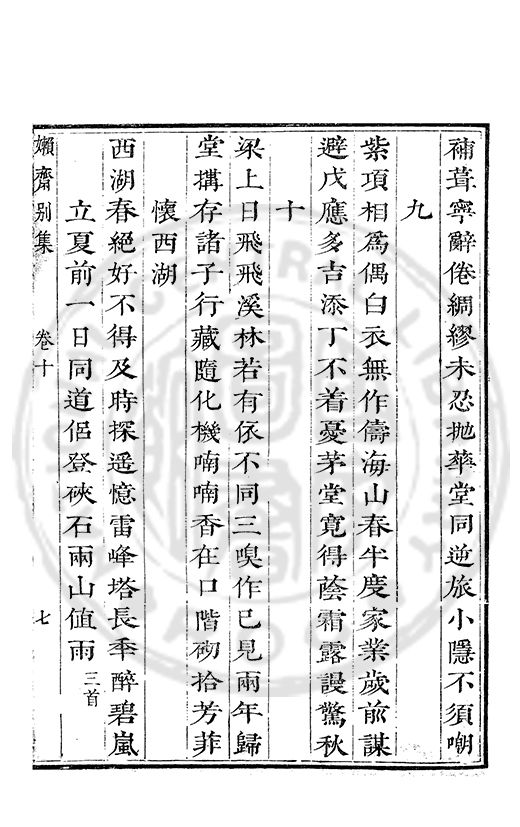 補葺寧辭倦綢繆未忍抛華堂同逆旅小隱不須嘲
九
紫項相爲偶白衣無作儔海山春半度家業歲前謀
避戊應多吉添丁不着憂茅堂寛得蔭霜露謾驚秋
十
梁上日飛飛溪林若有依不同三嗅作已見兩年歸
堂搆存諸子行藏隨化機喃喃香在口階砌拾芳菲
懷西湖
西湖春絕好不得及時探遥憶雷峰塔長年醉碧嵐
立夏前一日同道侶登硤石兩山值雨三首
嬾齋别集 卷十 七